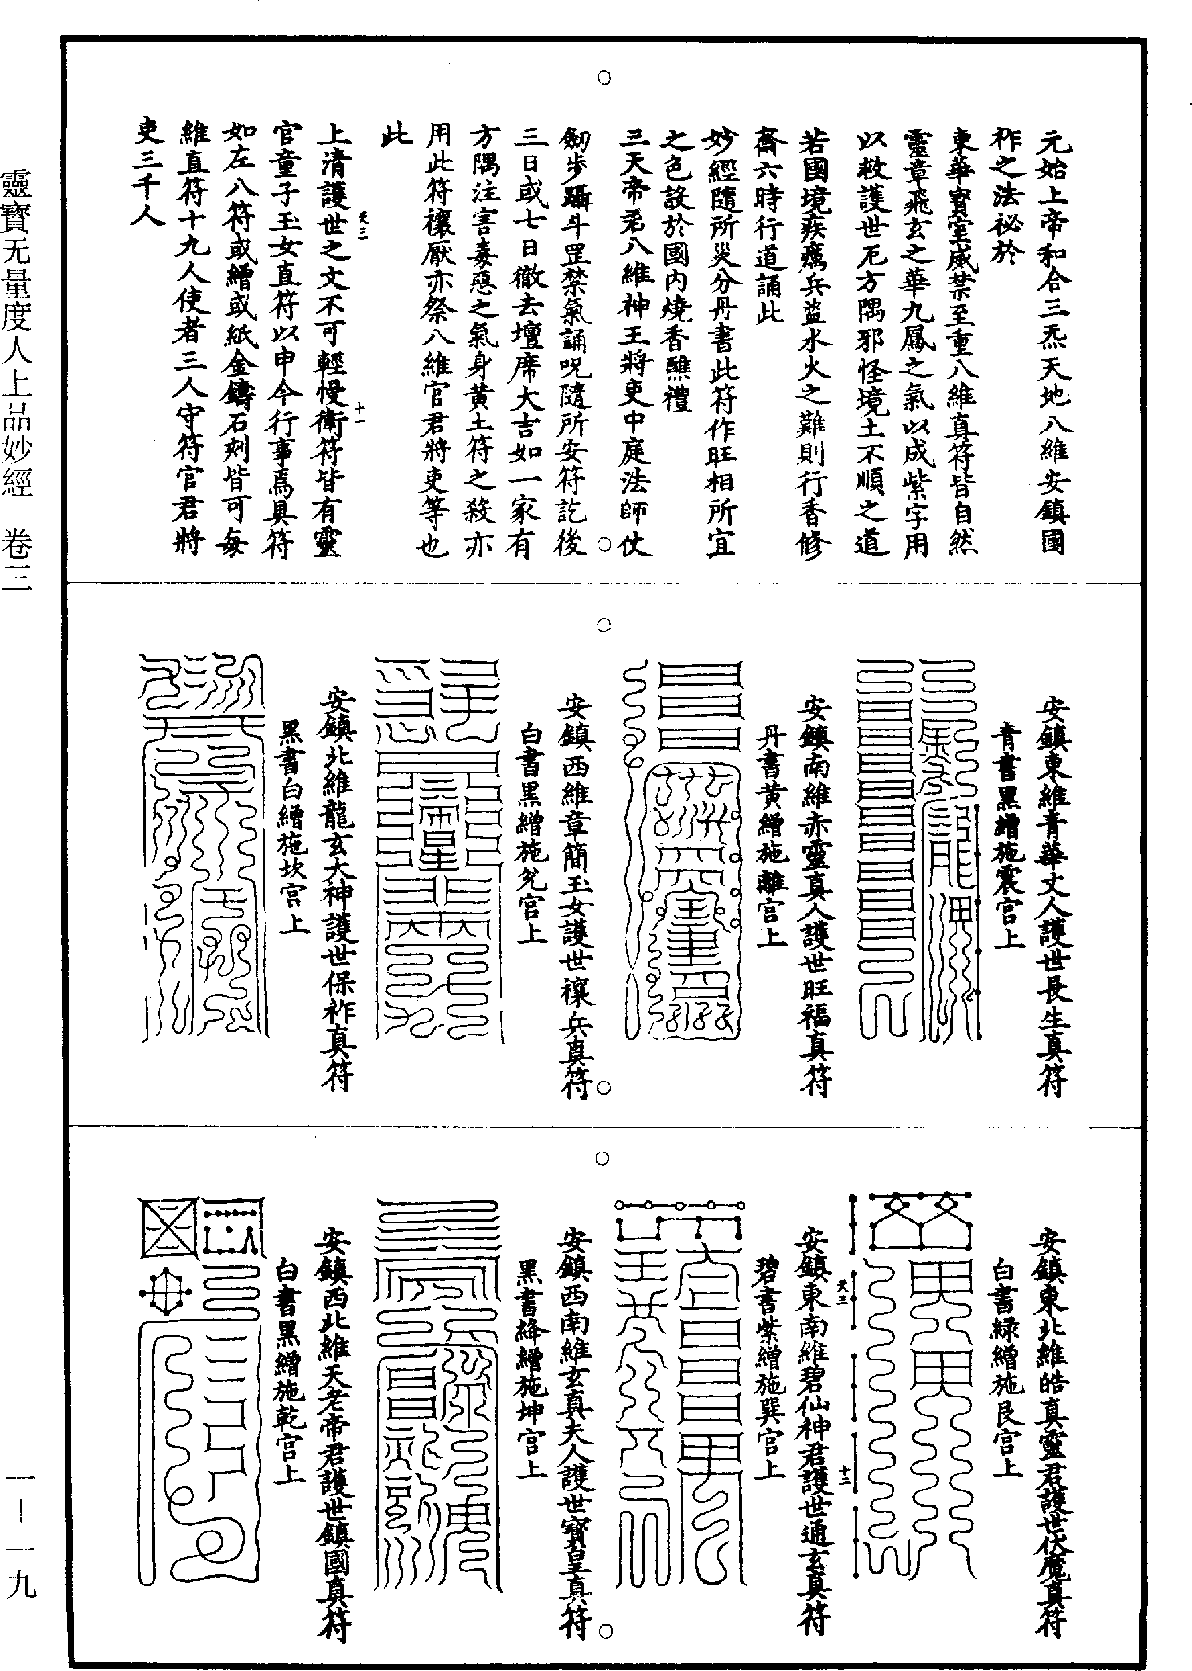 元始上帝和合三炁天地八維安鎮國
祚之法祕於
東華寶室威禁至重八維真符皆自然
靈章飛玄之華九鳳之氣以成紫字用
以救護世厄方隅邪怪境土不順之道
若國境疾癘兵盜水火之難則行香修
齋六時行道誦此
妙經隨所災分丹書此符作旺相所宜
之色設於國內燒香醮禮
三天帝君八維神王將吏中庭法師仗
劒步躡斗罡禁氣誦呪隨所安符訖後
三日或七日徹去壇席大吉如一家有
方隅注害毒惡之氣身黃土符之殺亦
用此符禳厭亦祭八維官君將吏等也
此
上清護世之文不可輕慢衛符皆有靈
官童子玉女直符以申令行事焉具符
如左八符或繒或紙金鑄石刻皆可每
維直符十九人使者三人守符官君將
吏三千人
天三
十一
安鎮東維青華丈人護世長生真符
青書黑繒施震宫上
安鎮南維赤靈真人護世旺福真符
丹書黃繒施離宫上
安鎮西維章簡玉女護世禳兵真符
白書黑繒施兌宫上
安鎮北維龍玄大神護世保祚真符
黑書白繒施坎宫上
安鎮東北維皓真靈君護世伏魔真符
白書緑繒施艮宫上
天三
十二
安鎮東南維碧仙神君護世通玄真符
碧書紫繒施巽宫上
安鎮西南維玄真夫人護世寶皇真符
黑書絳繒施坤宫上
安鎮西北維天老帝君護世鎮國真符
白書黑繒施乾宫上
靈寶无量度人上品妙經　卷三
一—一九